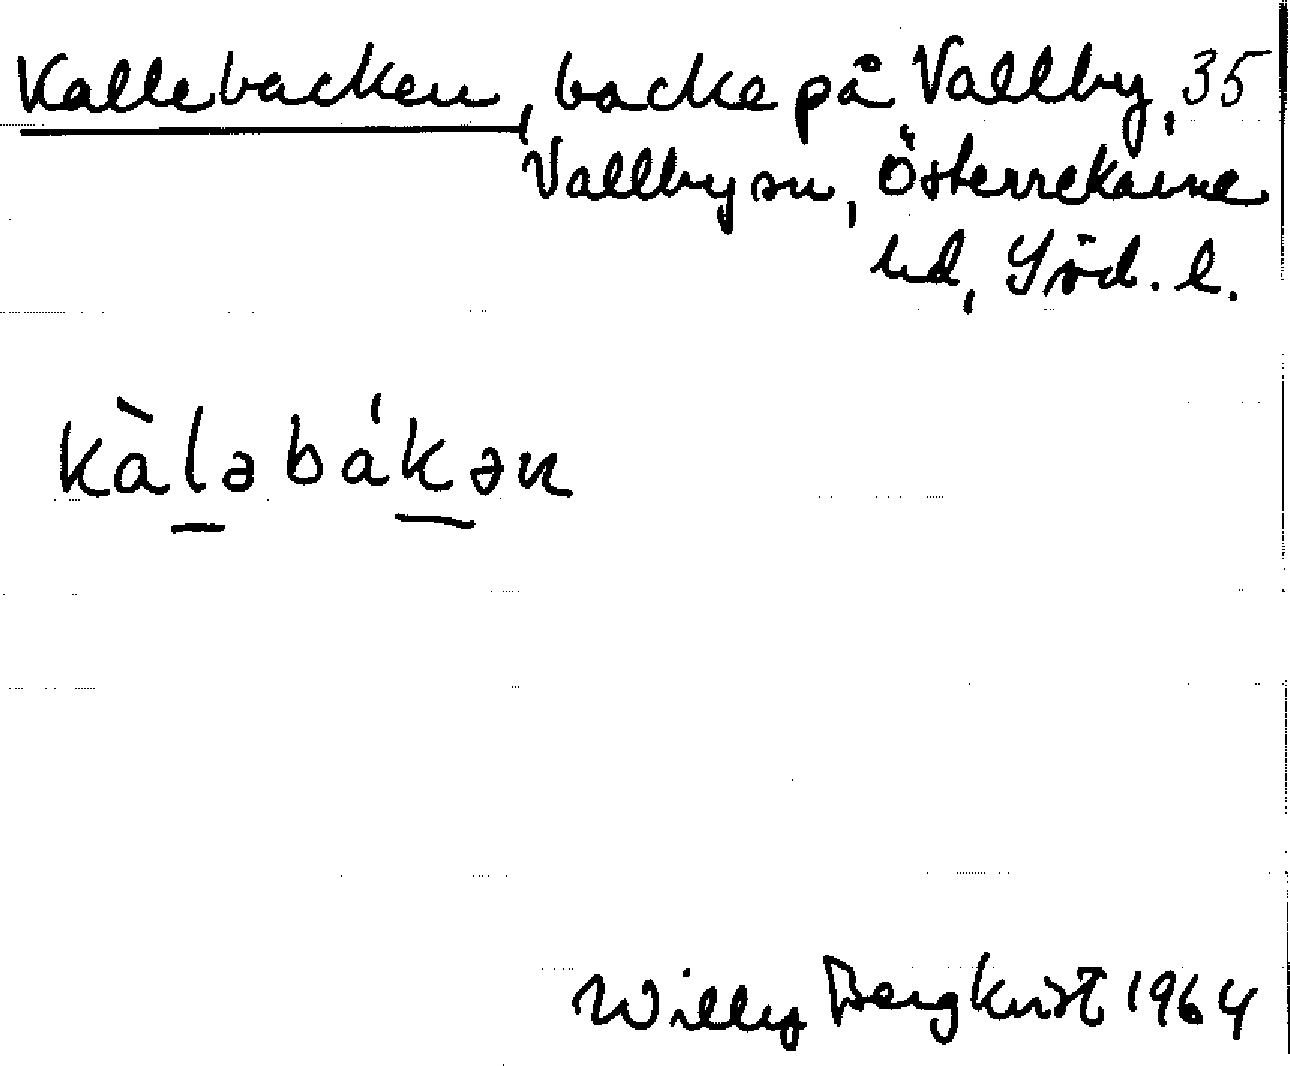 Kallebacken, backe på Vallby, 35
Vallby sn, Österrekarne
hd, Söd. l.
kàləbákən
Willy Bergkvist 1964